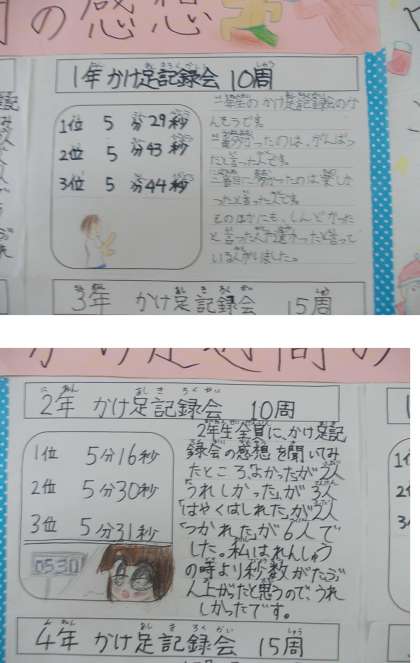 の感想
1年 かけ足記録会 10周
1位 5分29秒
2位 5分43秒
3位 5分44秒
一年生のかけ足記録会の
一番多かったのは、がんばっ
たと言った人です。
二番目に多かったのは楽しか
ったと言った人です。
そのほかにも、しんどかった
と言った人
いる人がいました。
3年 かけ足記録会 15周
2年 かけ足記録会 10周
1位 5分16秒
2位 5分30秒
3位 5分31秒
0530
2年生全員に、かけ足記
録会の感想を聞いてみ
たところ、「よかった」が2人
「うれしかった」が3人
「はやくはしれた」が2人
「つかれた」が6人で
した。私は、れんしゅう
の時より秒数がたぶ
ん上がったと思うので、うれ
しかったです。
4年 かけ足記録会 15周